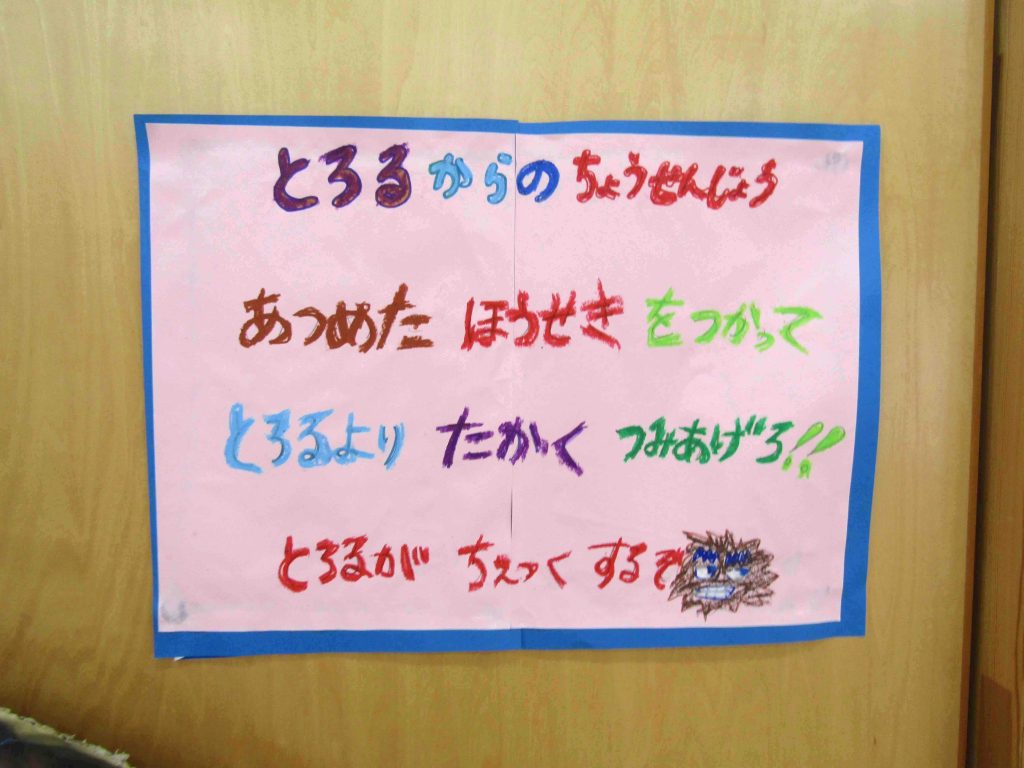 とろるからのちょうせんじょう
あつめた ほうせき をつかって
とろるより たかく つみあげろ!!
とろるが ちぇっく するぞ